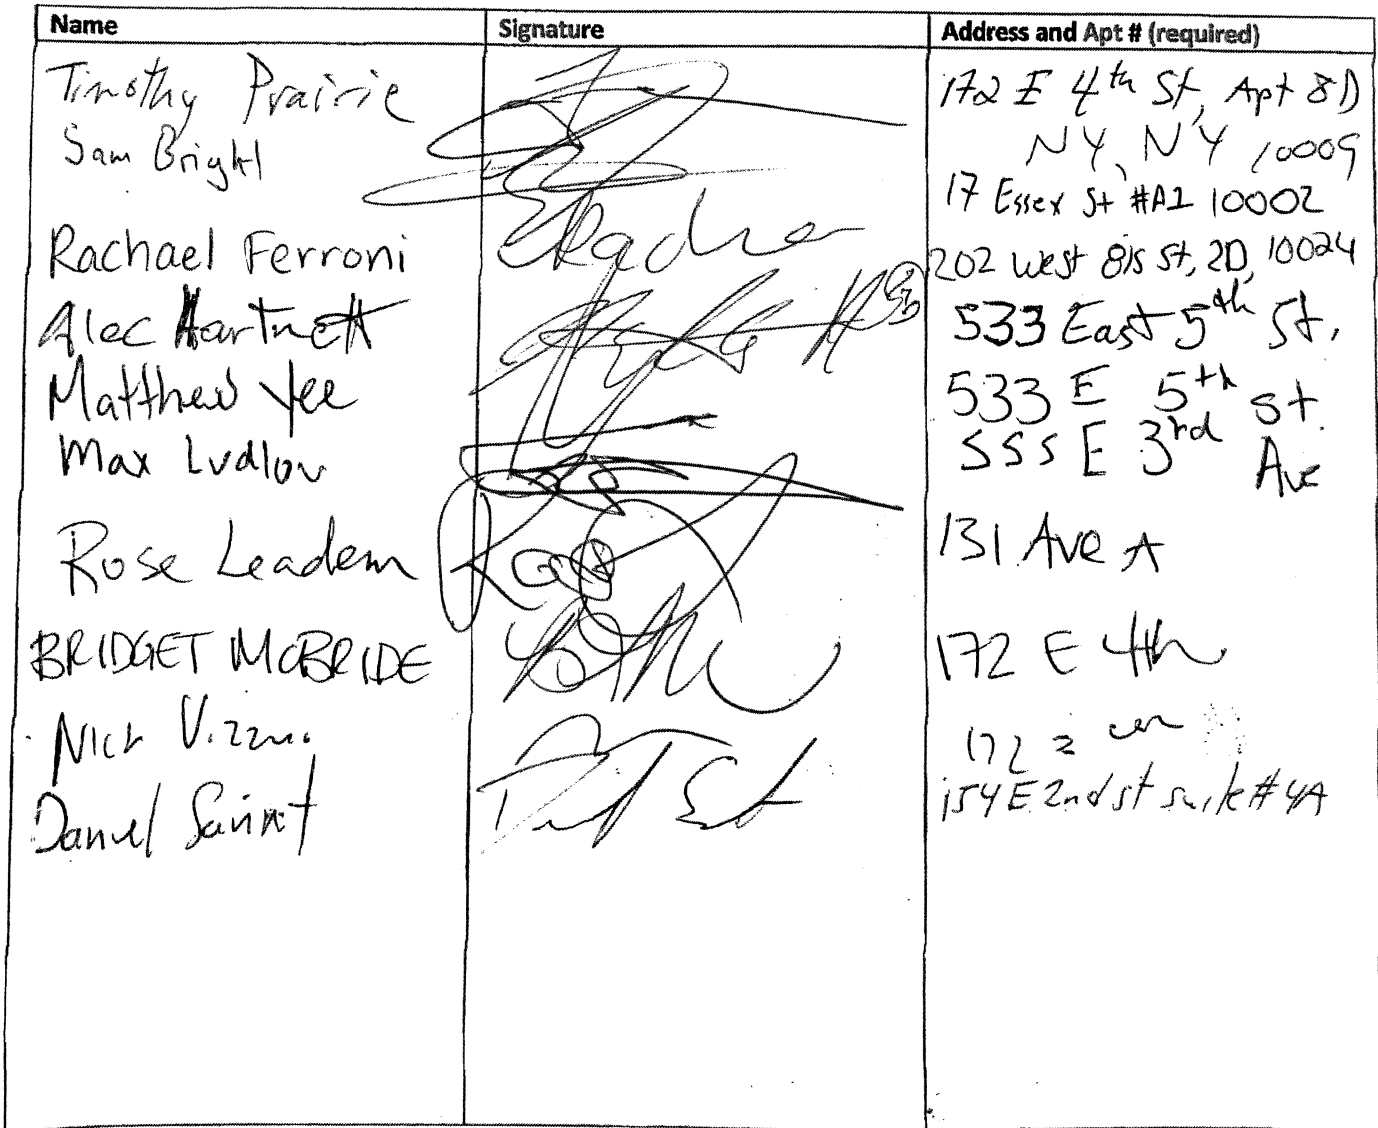 Name Signature Address and Apt # (required)
Timothy Prairie 172 E 4th St, Apt 8D
NY, NY 10009
Sam Bright 17 Essex St #A1 10002
Rachael Ferroni 202 West 81s St, 2D, 10024
Alec Hartnett 533 East 5th St.
Matthew Yee 533 E 5th St.
Max Ludlow 555 E 3rd Ave
Rose Leadem Rose 131 Ave A
BRIDGET MCBRIDE 172 E 4th
Nick 172
Daniel 154 E 2nd St suite # 4A